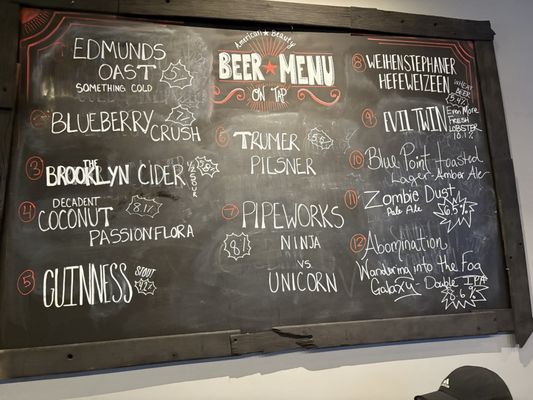 EDMUNDS
OAST
SOMETHING COLD
BLUEBERRY
CRUSH
3
THE
BROOKLYN CIDER
1/2 SOUR
4
DECADENT
COCONUT
8.1%
PASSIONFLORA
5
GUINNESS
STOUT
American Beauty
BEER MENU
ON TAP
6
TRUMER
PILSNER
7
PIPEWORKS
NINJA
VS
UNICORN
8
WEIHENSTEPHANER
HEFEWEIZEN
WHEAT
BEER
5.4%
9
EVIL TWIN
Even More
FRESH
LOBSTER
10.1%
10
Blue Point Toasted
Lager - Amber Ale
11
Zombie Dust
Pale Ale
6.5%
12
Abomination
Wandering into the Fog
Galaxy - Double IPA
8.6%
adidas